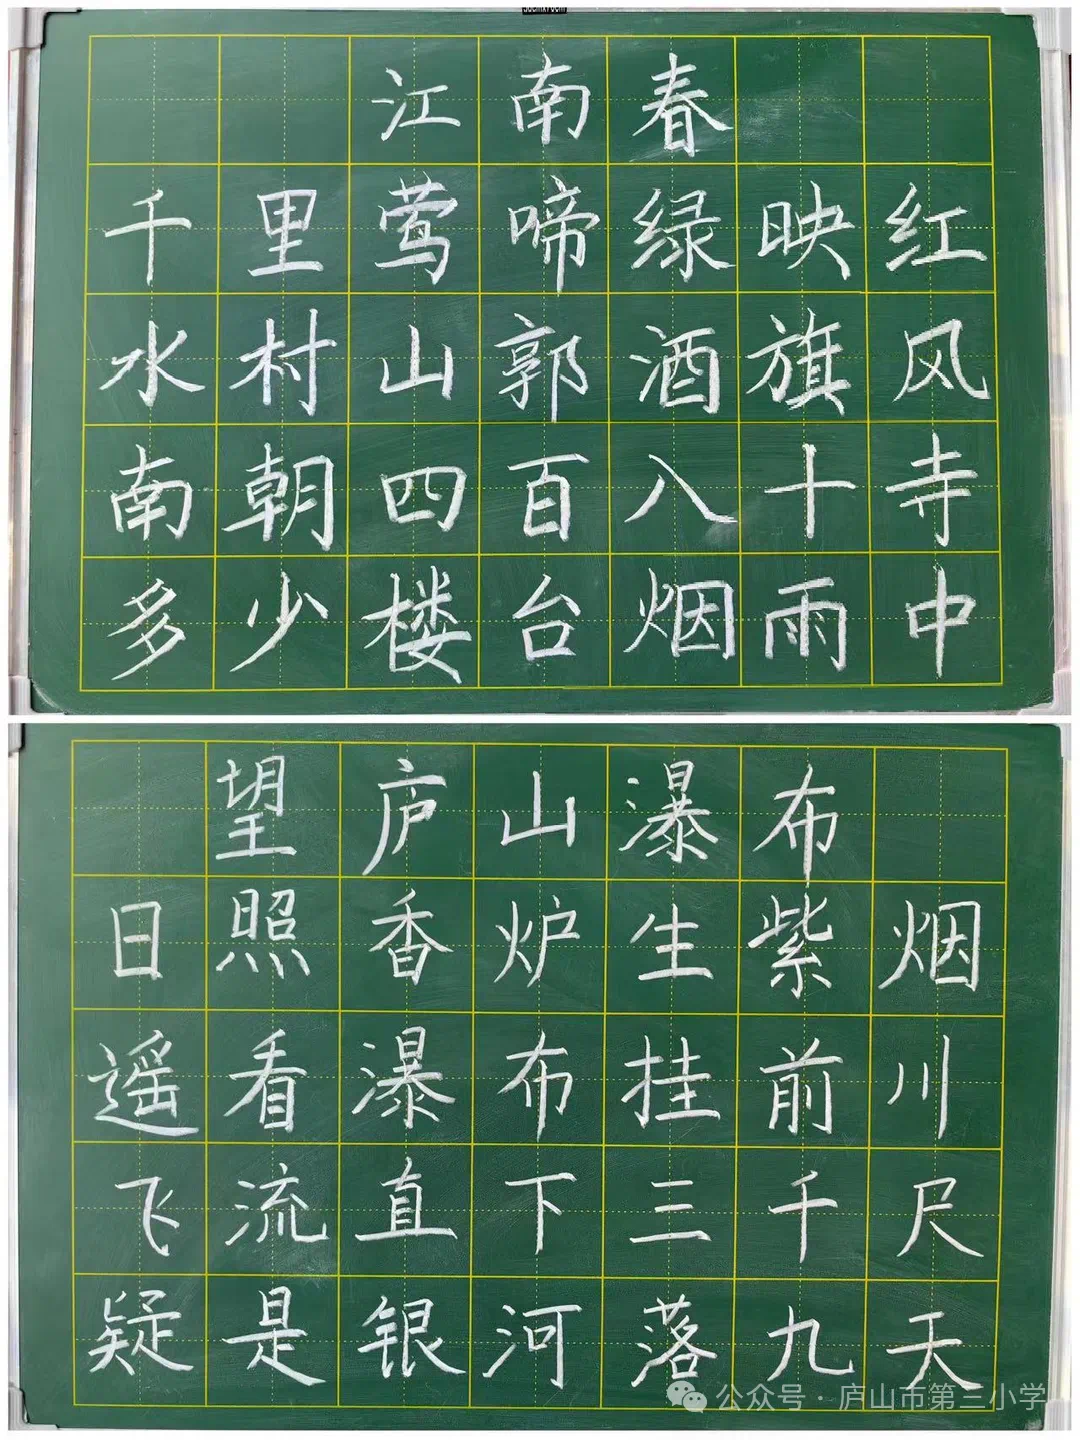 江南春
千里莺啼绿映红
水村山郭酒旗风
南朝四百八十寺
多少楼台烟雨中
望庐山瀑布
日照香炉生紫烟
遥看瀑布挂前川
飞流直下三千尺
疑是银河落九天
公众号·庐山市第三小学